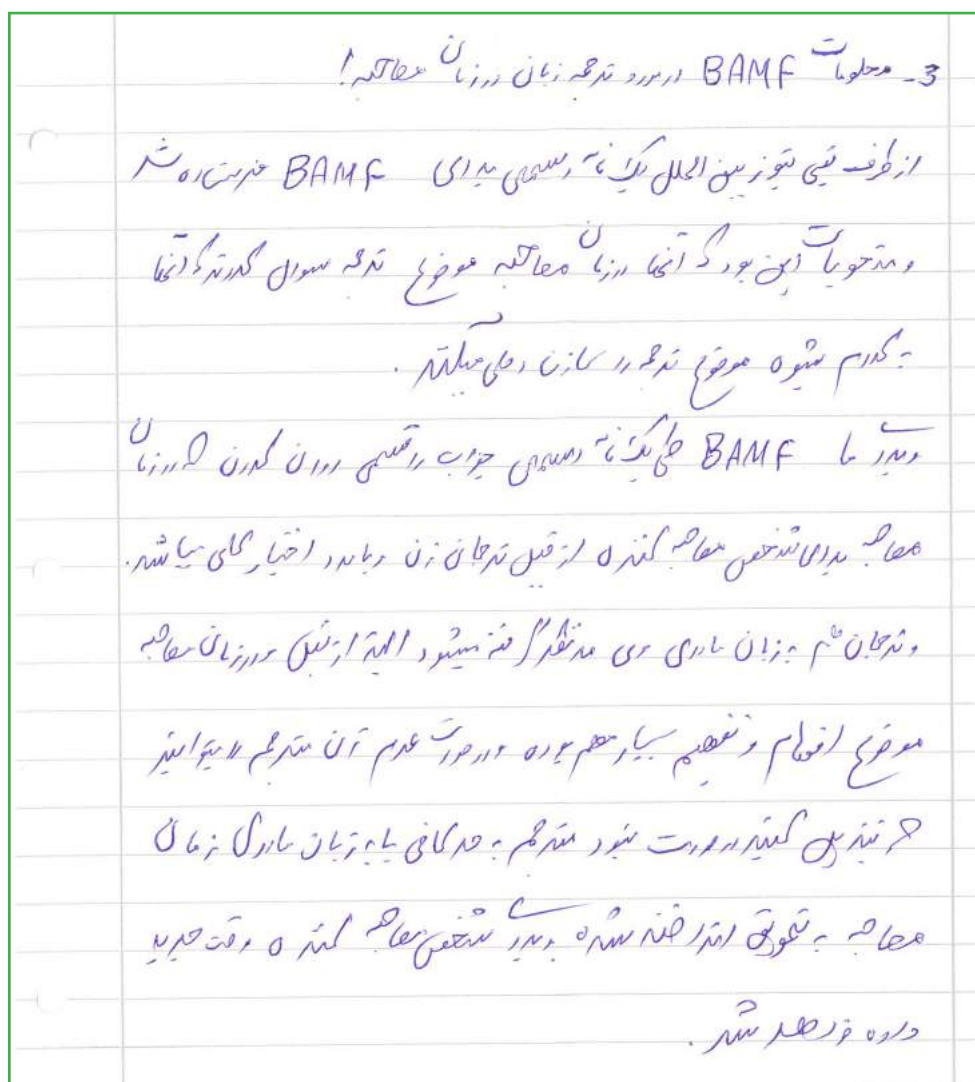 3- معلومات BAMF در مورد ترجمه زبان در زمان مصاحبه!
از طرف بین الملل یک نامه رسمی برای BAMF فرستاده شد
و محتویات این بود که آنها در زمان مصاحبه موضوع ترجمه سوال کردند که آنها
به کدام شیوه موضوع ترجمه را سازمان دهی میکنند.
و بعداً BAMF طی یک نامه رسمی جواب در قسمی روان کردن که در زمان
مصاحبه برای شخص مصاحبه کننده از قبل ترجمان زن و یا مرد اختیار کلی میباشد.
و ترجمان هم به زبان مادری وی مد نظر گرفته میشود البته از قبل و در زمان مصاحبه
موضوع افهام و تفهیم بسیار مهم بوده و در صورت عدم آن مترجم را میتوانید
تبدیل کنید در صورت نبود مترجم به حد کافی یا به زبان مادری زمان
مصاحبه به تعویق انداخته شده و بعداً شخص مصاحبه کننده وقت جدید
داده خواهد شد.